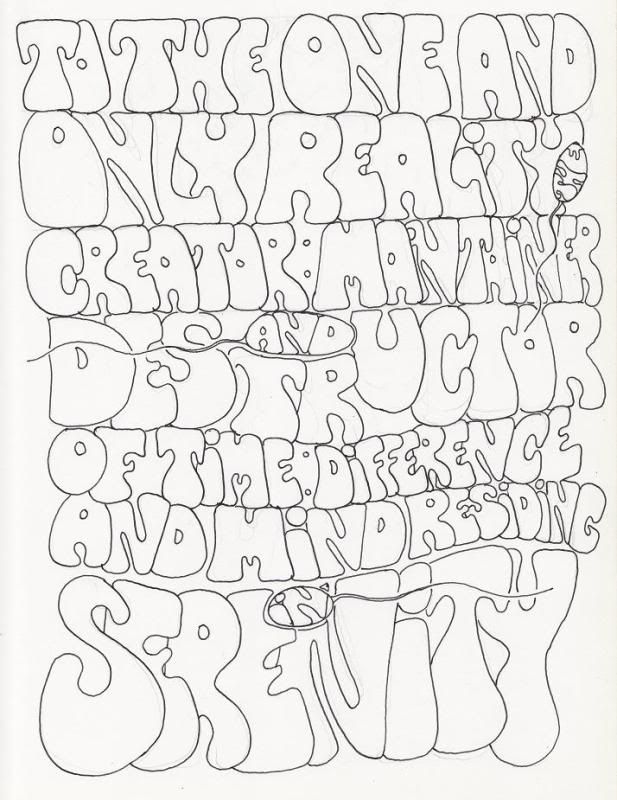 TO THE ONE AND
ONLY REALiTY
CREATOR: MANTAiNER
AND
DESTRUCTOR
OF TiME: DiFFERENCE
AND MiND RESiDiNG
iN
SERENiTY